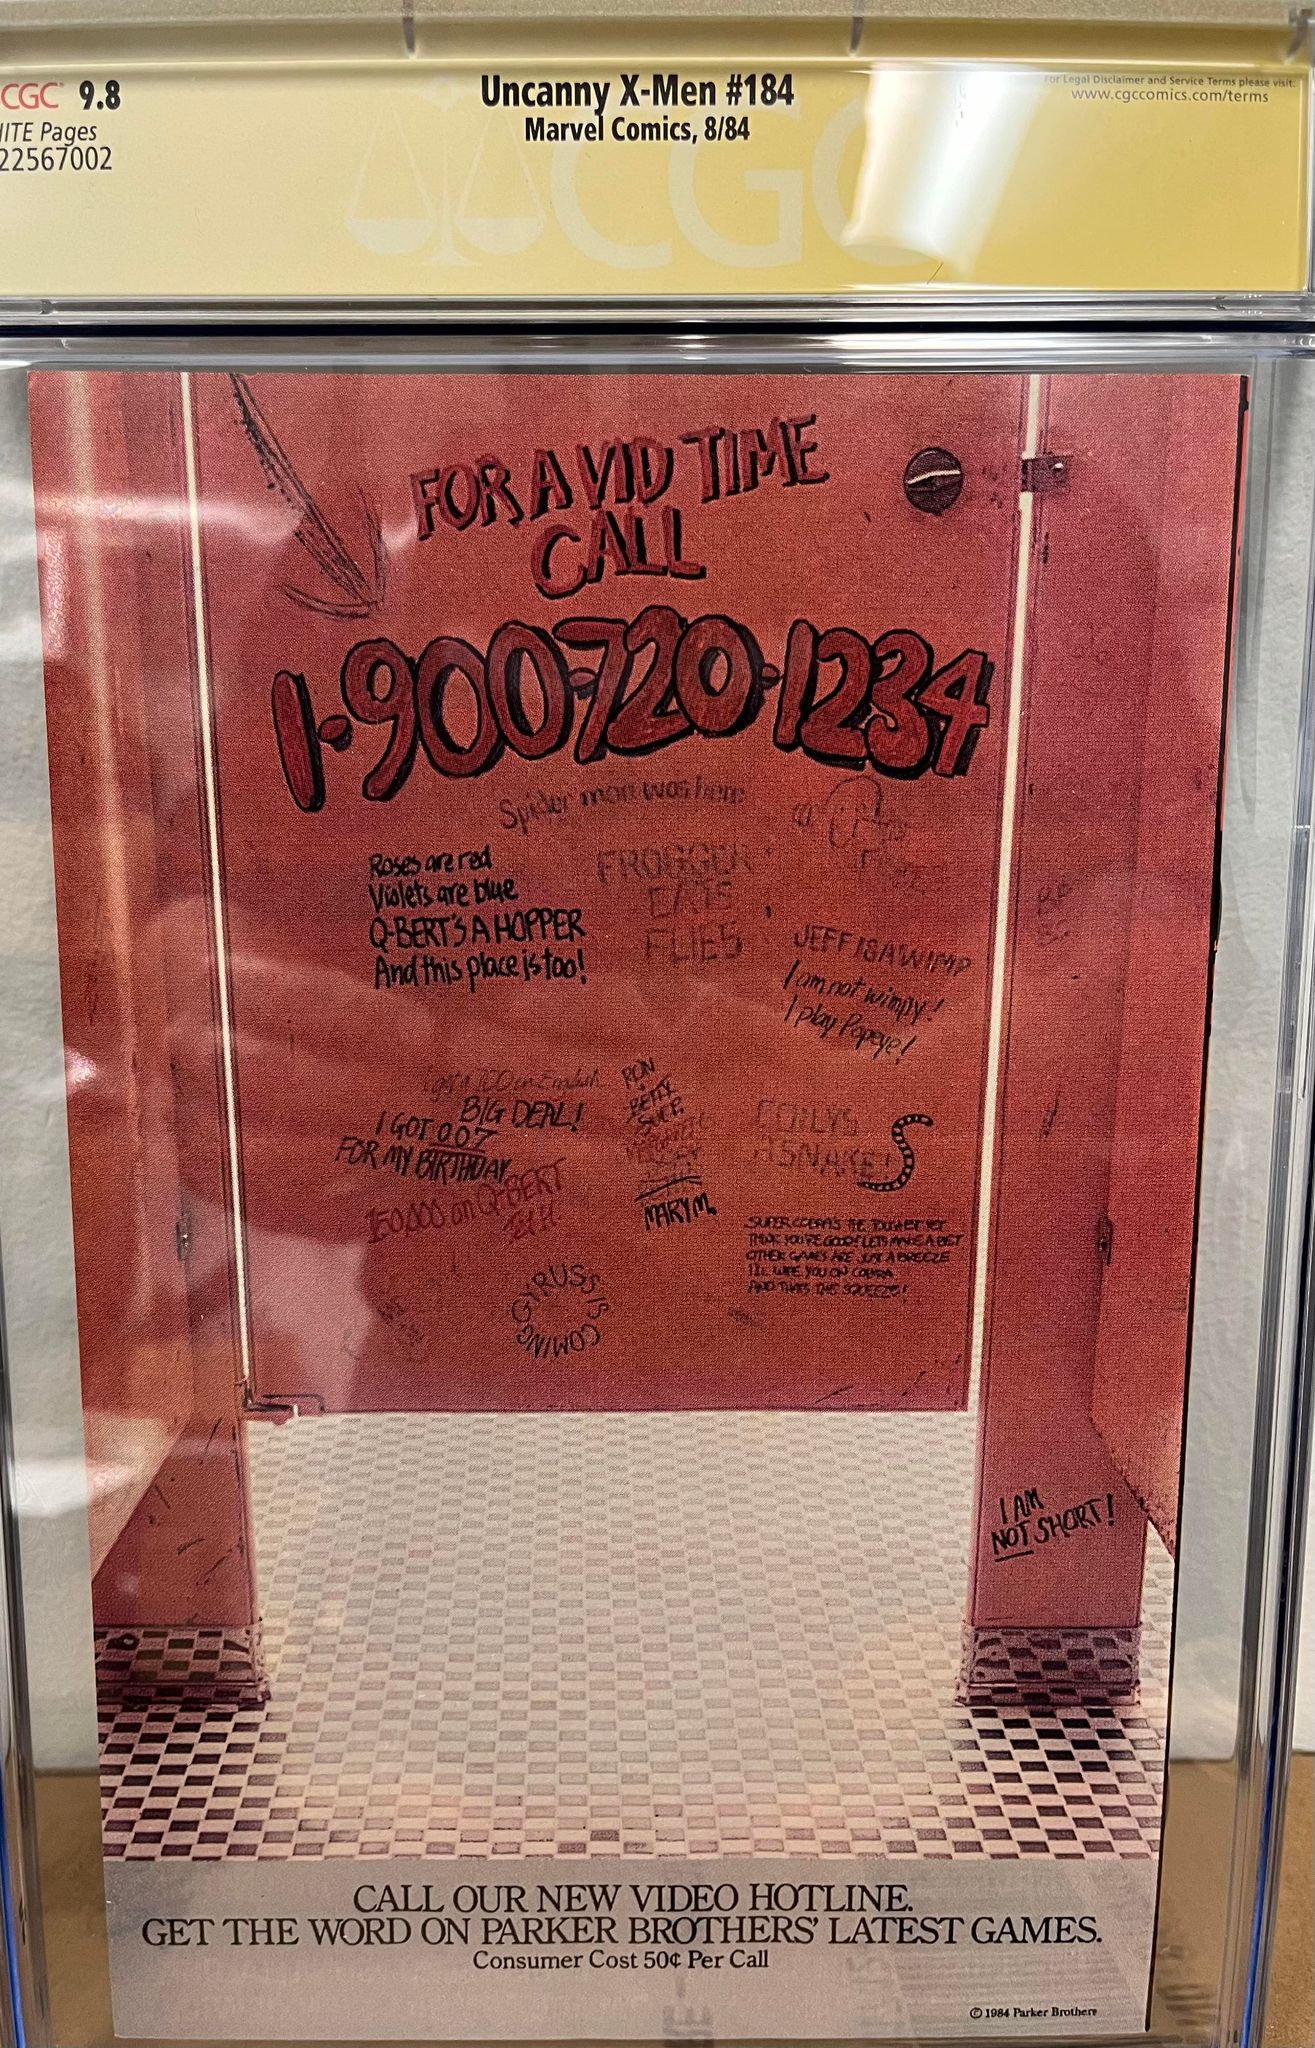 CGC 9.8
ITE Pages
22567002
Uncanny X-Men #184
Marvel Comics, 8/84
For Legal Disclaimer and Service Terms please visit:
www.cgccomics.com/terms
CGC
FOR A VID TIME
CALL
1-900-720-1234
Spider man was here
Roses are red
Violets are blue
Q-BERT'S A HOPPER
And this place is too!
FROGGER
EATS
FLIES
JEFF IS A WIMP
I am not wimpy!
I play Popeye!
BIG DEAL!
I GOT 007
FOR MY BIRTHDAY
150,000 on Q-BERT
RON
+
BETTY
SUE
MARY M.
A SNAKE!
SUPER COBRA'S THE TOUGHEST YET
THINK YOU'RE GOOD? LETS MAKE A BET
OTHER GAMES ARE JUST A BREEZE
YOU ON COBRA
AND THAT'S THE SQUEEZE!
GYRUSS IS COMING
I AM
NOT SHORT!
CALL OUR NEW VIDEO HOTLINE.
GET THE WORD ON PARKER BROTHERS' LATEST GAMES.
Consumer Cost 50¢ Per Call
© 1984 Parker Brothers